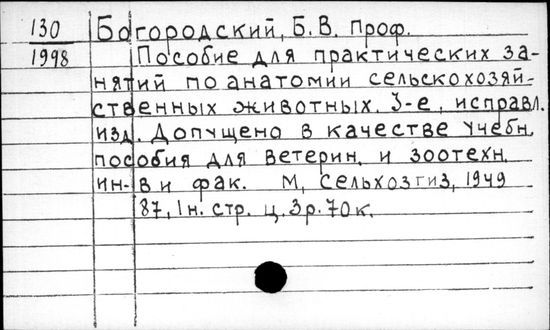 130 Богородский, Б.В. Проф.
1998 Пособие для практических за-
нятий по анатомии сельскохозяй-
ственных животных. 3-е, исправл.
изд. Допущено в качестве учебн.
пособия для ветерин. и зоотехн.
ин-в и фак. М, Сельхозгиз, 1949
87, 1н. стр. ц. 3р. 70к.